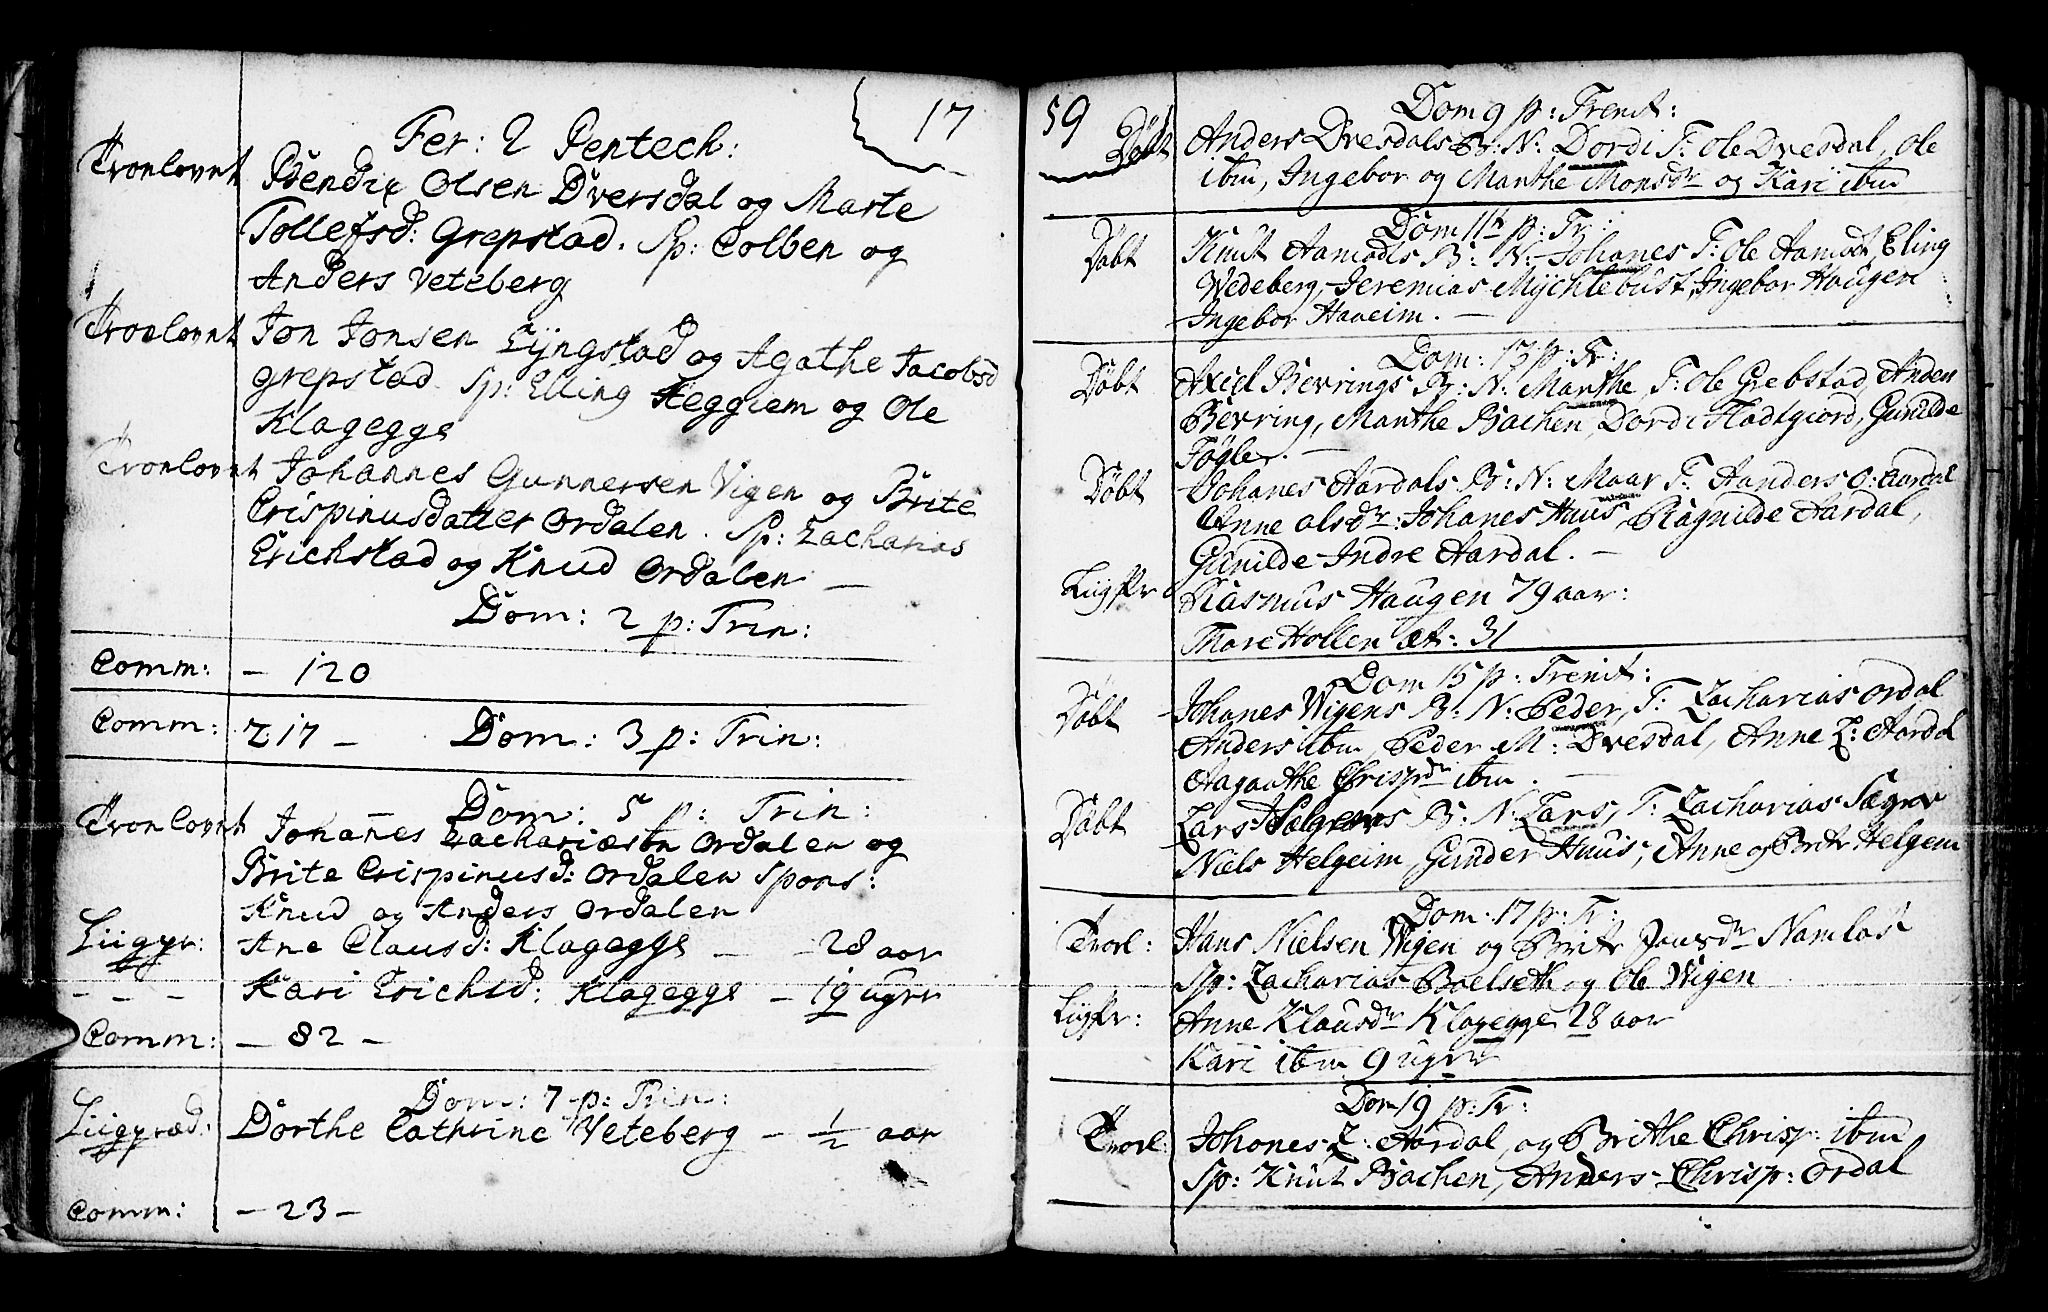 17
Fer: 2 Pentech:
Tronlovet Bendix Olsen Dversdal og Marte
Tollefsd: Grepstad. Sp: Colben og
Anders Veteberg
Tronlovet Jon Jonsen Lyngstad og Agathe Jacobsd
grepstad Sp: Elling Aeggiem og Ole
Klagegge
Tronlovet Johannes Gunnersen Vigen og Brite
Crispinusdatter Ordalen. Sp: Zacharias
Erichstad og Knud Ordalen —
Dom: 2 p: Trin:
Comm: — 120
Comm: 217 — Dom: 3 p: Trin:
Dom: 5 p: Trin:
Tronlovet Johannes Zachariæsen Ordalen og
Brite Crispinusd: Ordalen Spons:
Knud og Anders Ordalen
Liigpr: Ane Clausd: Klagegge — 28 aar
- - - Kari Erichsd: Klagegge — 19 uger
Comm: — 82 —
Dom: 7 p: Trin:
Liigpræd: Dorthe Cathrine Veteberg — 1/2 aar
Comm: — 23 —
59
Dom 9 p: Trenit:
Døbt Anders Dvesdals B: N: Dordi F: Ole Dvesdal, Ole
ibm, Ingebor og Marthe Monsdr og Kari ibm
Dom 11te p: Tr:
Døbt Knut Aamodts B: N: Johanes F: Ole Aamodt, Eling
Wedeberg, Jeremias Mychlebust, Ingebor Haugen
Ingebor Haaeim. —
Dom: 13 p: Tr:
Døbt Axel Bevrings B: N: Marthe, F: Ole Grebstad, Anden
Bevring, Marthe Bachen, Dordi Fladtgiord, Gunilde
Fogler. —
Døbt Johanes Aardals B: N: Maar F: Handers O: Aardal
Anne olsdr: Johanes Huus, Ragnilde Aardal,
Gunilde Indre Aardal. —
Liigpr Rasmus Haugen 79 aar:
Mare Hollen æt: 31
Dom 15 p: Trenit:
Døbt Johanes Wigens B: N: Peder, F: Zacharias Ordal
Anders ibm, Peder M: Dvesdal, Anne Z: Aardal
Aagaathe Chrispdr ibm. —
Døbt Lars Sægrovs B: N: Lars, F: Zacharias Sægrov
Niels Helgeim, Gunder Huus, Anne og Brite Helgem
Dom. 17 p: Tr:
Trol: Hans Nielsen Wigen og Brite Jansdr Namløs
Sp: Zacharias Boelseth og Ole Wigen
Liigpr: Anne Klausdr Klagegge 28 aar
Kari ibm 9 uger
Dom 19 p: Tr:
Trol: Johanes Z: Aardal, og Brithe Chrisp: ibm
Sp: Knut Bachen, Anders Chrisp: Ordal